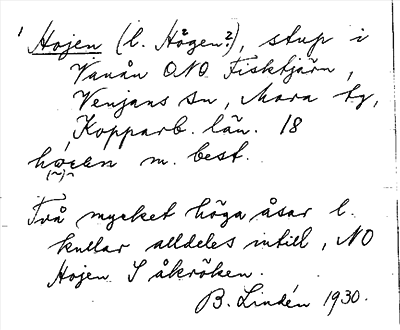 ' Hojen (l. Högen?), stup i
Vanån ONO. Fisktjärn,
Venjans sn, Mora tg,
Kopparb. län. 18
m. best.
Två mycket höga åsar l.
kullar alldeles intill, NO
Hojen. I åkröken.
B. Lindén 1930.